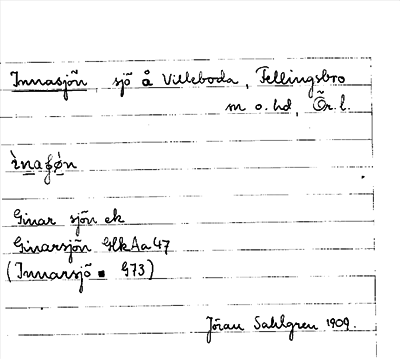 Innasjön, sjö å Villeboda, Fellingsbro
m o. hd, Ör. l.
ìnaʃø̀n
Ginar sjön ek
Ginarsjön GlkAa47
(Innarsjö ▪ G73)
Jöran Sahlgren 1909.